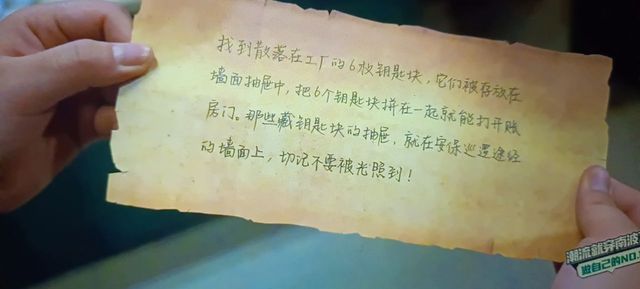 找到散落在工厂的6枚钥匙块，它们被存放在
墙面抽屉中，把6个钥匙块拼在一起就能打开账
房门。那些藏钥匙块的抽屉，就在安保巡逻途经
的墙面上，切记不要被光照到！
潮流就穿南波
做自己的NO.